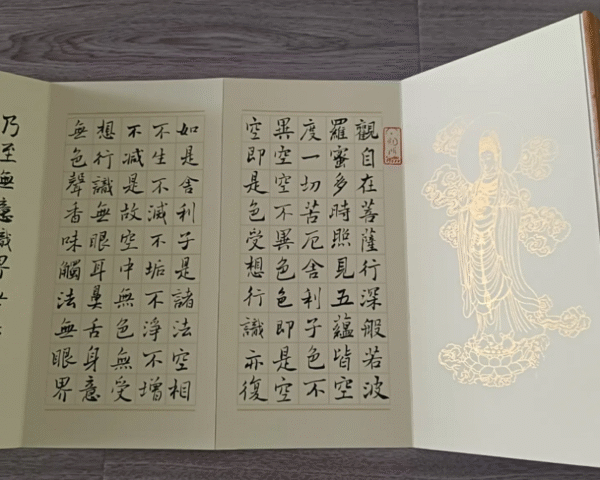 觀自在菩薩行深般若波
羅蜜多時照見五蘊皆空
度一切苦厄舍利子色不
異空空不異色色即是空
空即是色受想行識亦復
如是舍利子是諸法空相
不生不滅不垢不淨不增
不减是故空中無色無受
想行識無眼耳鼻舌身意
無色聲香味觸法無眼界
乃至無意識界